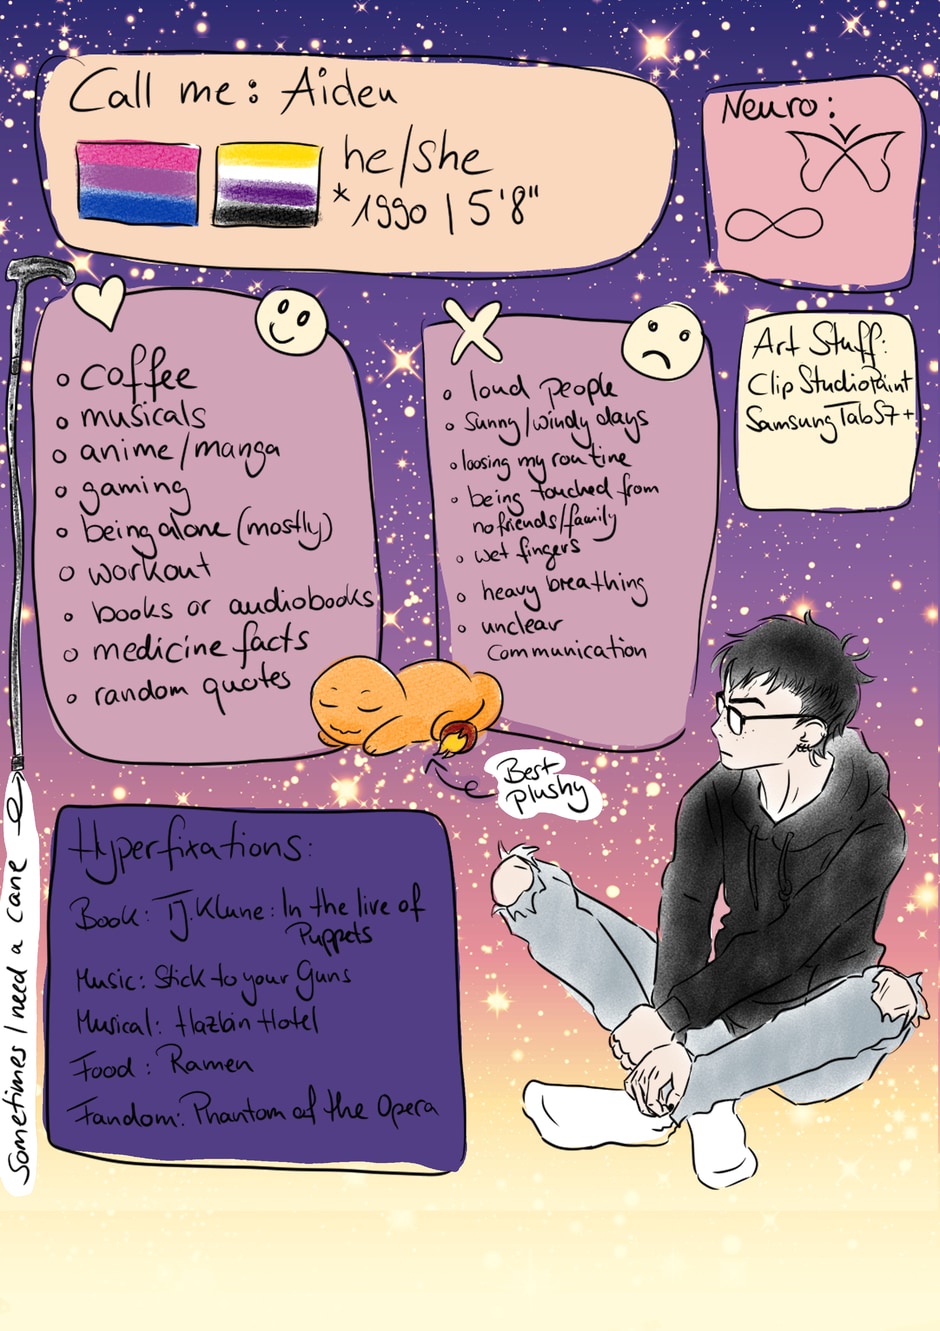 Call me: Aiden
he/she
*1990 | 5'8"
Neuro:
coffee
musicals
anime/manga
gaming
being alone (mostly)
workout
books or audiobooks
medicine facts
random quotes
loud people
sunny/windy days
loosing my routine
being touched from
no friends/family
wet fingers
heavy breathing
unclear
communication
Art Stuff:
Clip Studio Paint
Samsung Tab S7+
Best
plushy
Sometimes I need a cane
Hyperfixations:
Book: TJ.Klune: In the live of
Puppets
Music: Stick to your Guns
Musical: Hazbin Hotel
Food: Ramen
Fandom: Phantom of the Opera